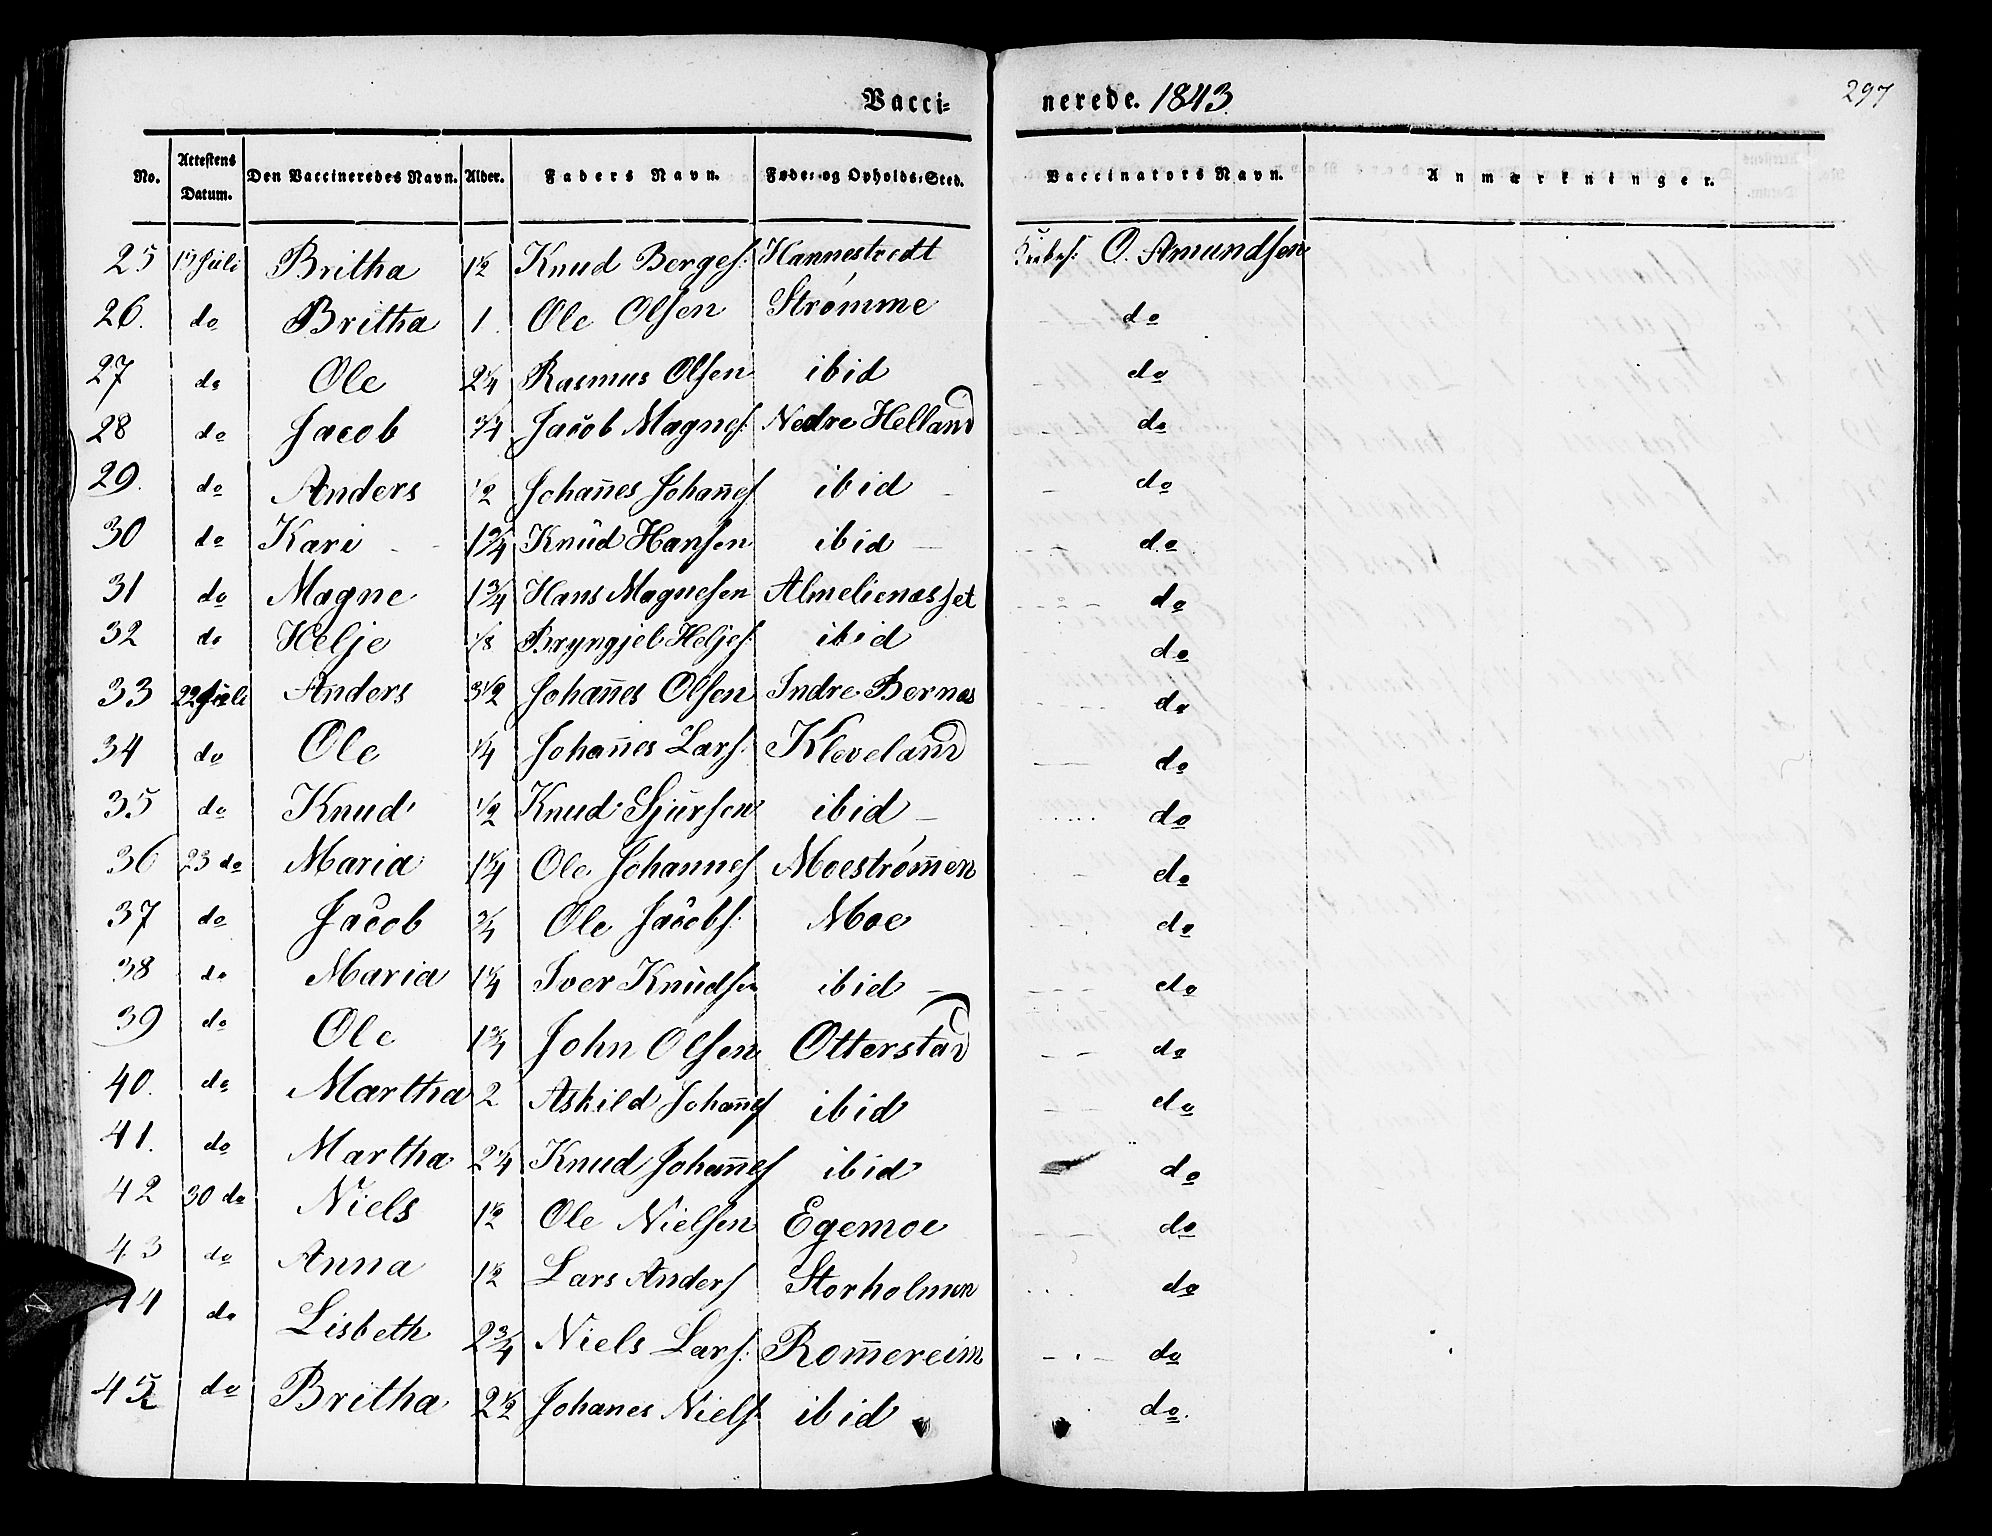 Vacci-nerede. 1843. 297
No. Attestens Datum. Den Vaccineredes Navn. Alder. Faders Navn. Føde- og Opholds-Sted. Vaccinators Navn. Anmærkninger.
25 19 Juli Britha 1½ Knud Bergesf: Hannestvedt O. Amundsen
26. do Britha 1. Ole Olsen Strømme do
27 do Ole 2¼ Rasmus Olsen ibid do
28 do Jacob ¾ Jacob Magnesf: Nedre Helland do
29. do Anders ½ Johan̄es Johan̄esf ibid do
30 do Kari 1¾ Knud Hansen ibid do
31 do Magne 1¾ Hans Magnesen Almelienæsset do
32 do Helje ⅛ Bryngjel Heljes: ibid do
33 22 Juli Anders 3½ Johan̄es Olsen Indre Bernæs do
34 do Ole ¼ Johan̄es Lars: Kleveland do
35 do Knud ½ Knud Sjursen ibid do
36 23 do Maria 1¼ Ole Johannes Moestrøm̄en do
37 do Jacob ¾ Ole Jacobs: Moe do
38 do Maria 1¼ Iver Knudsen ibid do
39 do Ole 1¾ John Olsen Otterstad do
40. do Martha 2 Askild Johan̄es ibid do
41. do Martha 2¼ Knud Johan̄es ibid do
42 30 do Niels 1½ Ole Nielsen Egemoe do
43 do Anna 1½ Lars Anders Storholmen do
44 do Lisbeth 2¾ Niels Lars: Rom̄ereim do
45 do Britha 2½ Johanes Niels: ibid do.